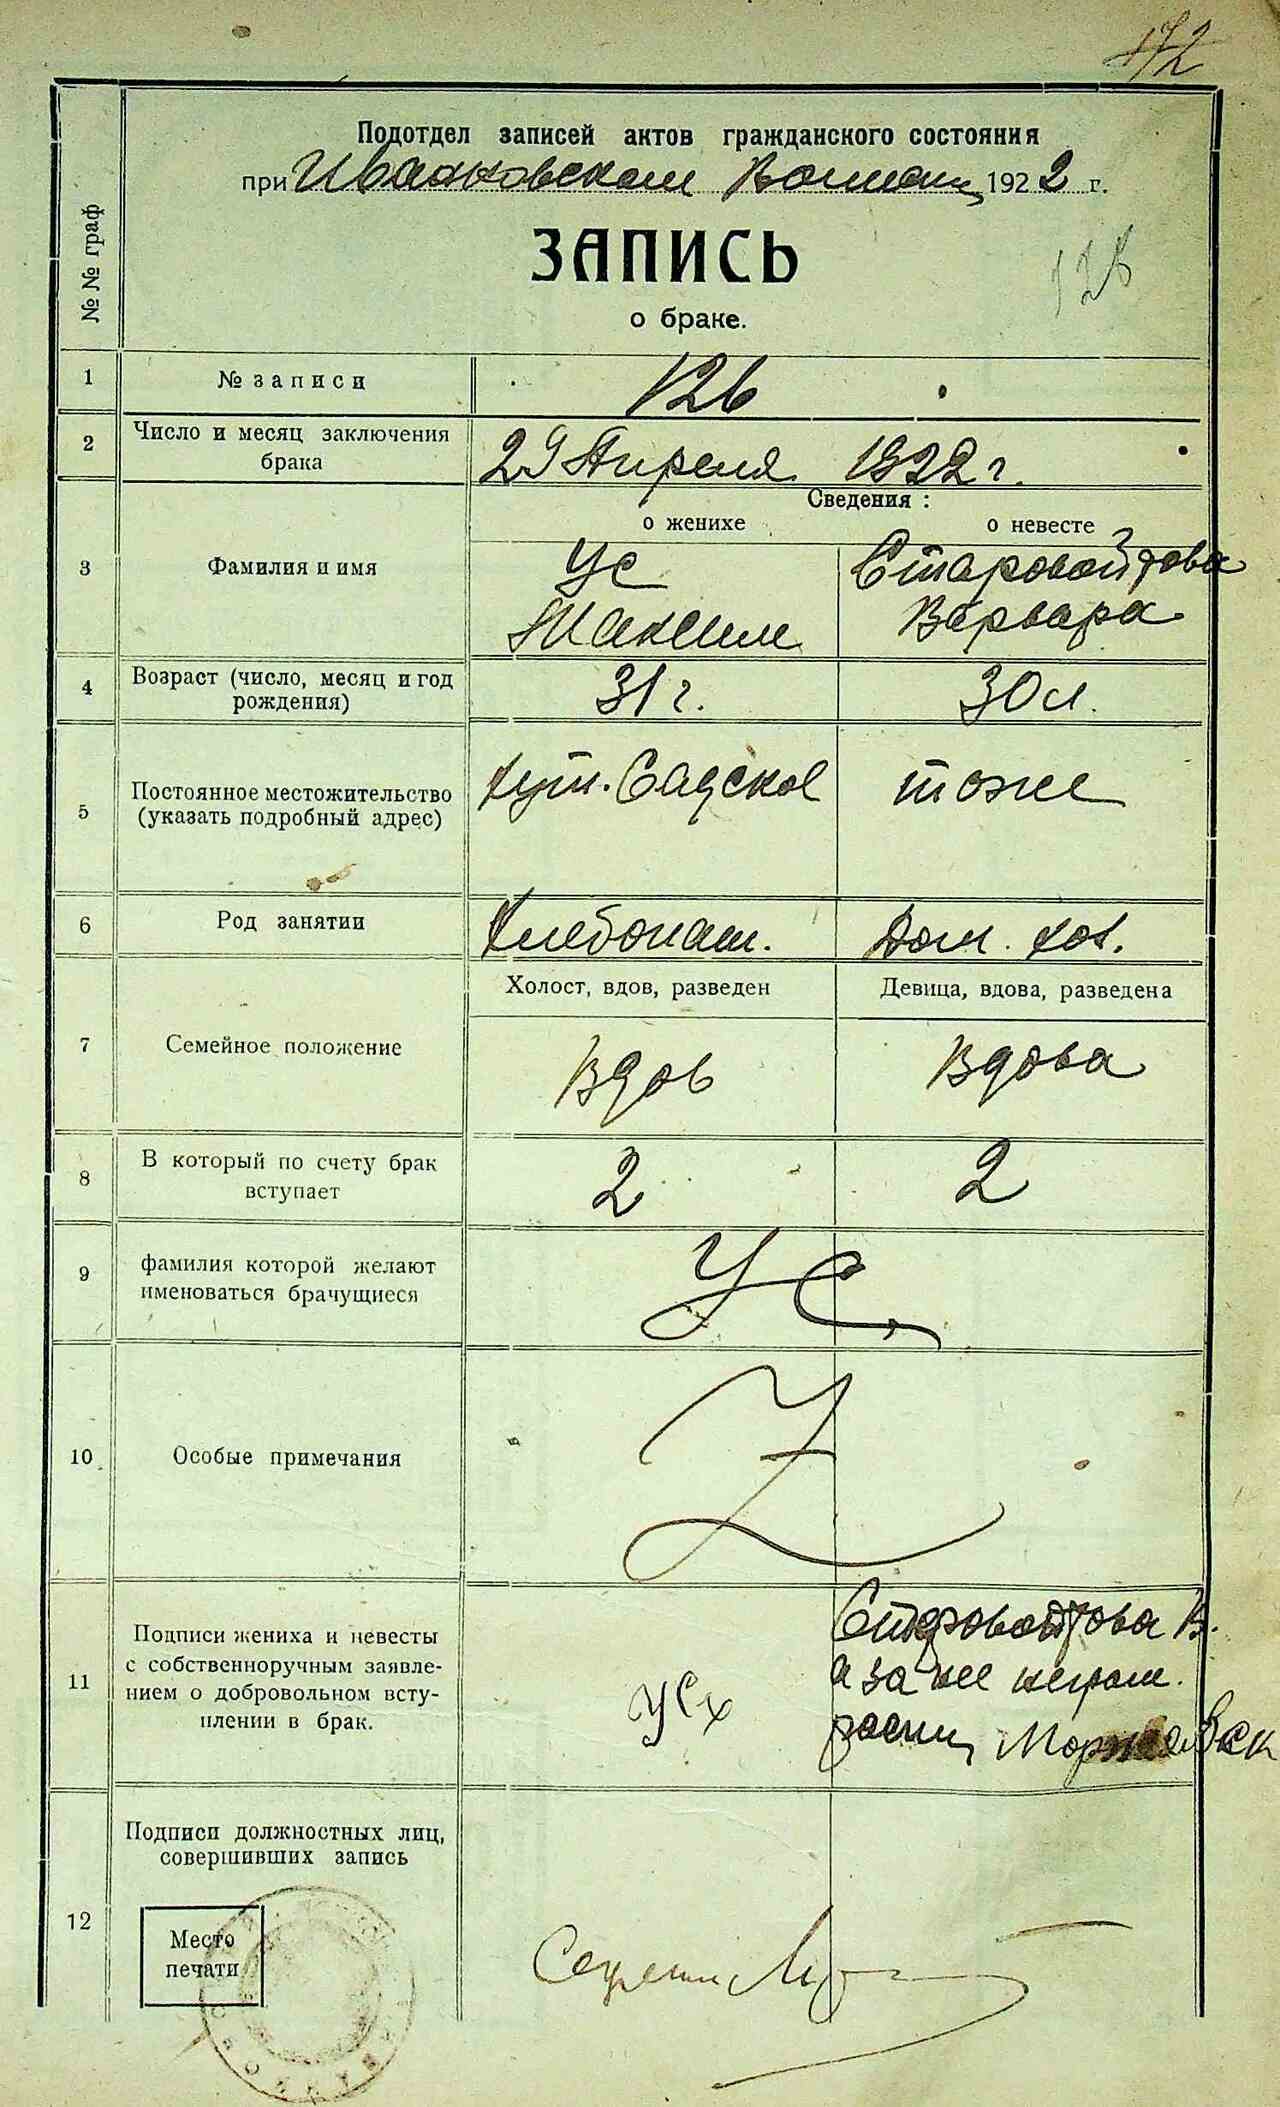 172
Подотдел записей актов гражданского состояния
при Ивановском 1922 г.
126
ЗАПИСЬ
о браке.
№ № граф
1 № записи 126
2 Число и месяц заключения
брака 29 Апреля 1922 г.
Сведения:
о женихе о невесте
3 Фамилия и имя Ус Старовойтова
Максим Варвара
4 Возраст (число, месяц и год
рождения) 31 г. 30 л.
5 Постоянное местожительство
(указать подробный адрес) хут. Садской тоже
6 Род занятии Хлебопаш. Дом. хоз.
7 Семейное положение
Холост, вдов, разведен Девица, вдова, разведена
Вдов Вдова
8 В который по счету брак
вступает 2 2
9 фамилия которой желают
именоваться брачущиеся Ус
10 Особые примечания Z
11 Подписи жениха и невесты
с собственноручным заявле-
нием о добровольном всту-
плении в брак.
Ус
Старовойтова В.
а за нее неграм.
12 Подписи должностных лиц,
совершивших запись
Место
печати